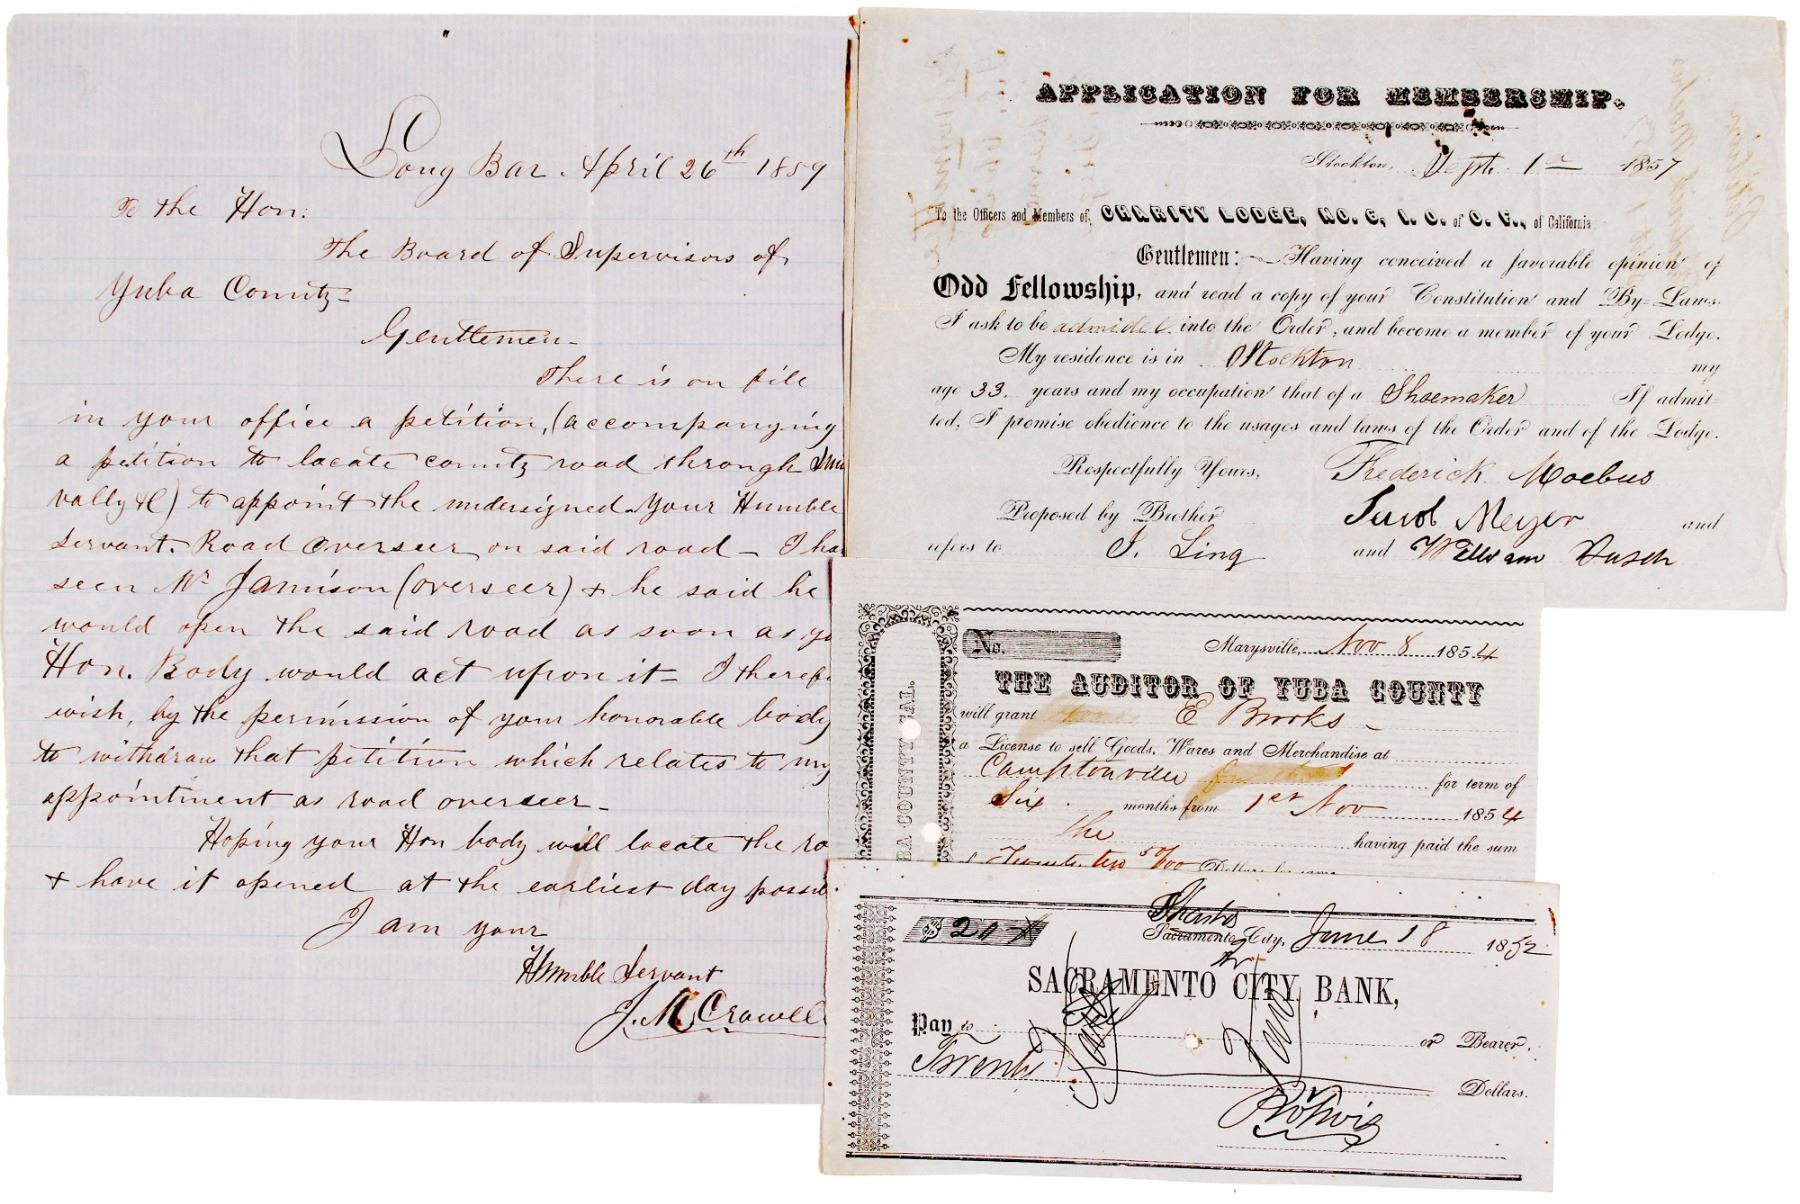 Long Bar. April 26th 1859
To the Hon.
The Board of Supervisors of
Yuba County-
Gentlemen-
There is on file
in your office a petition, (accompanying
a petition to locate county road through
vally &c) to appoint the undersigned Your Humble
servant. Road Overseer on said road - I ha
seen Mr Jamison (overseer) & he said he
would open the said road as soon as yo
Hon. Body would act upon it - I theref
wish, by the permission of your honorable body
to withdraw that petition which relates to my
appointment as road overseer -
Hoping your Hon body will locate the ro
& have it opened at the earliest day possi
I am your
Humble Servant
J. M. Crowell
APPLICATION FOR MEMBERSHIP.
Stockton, Sept. 1st 1857
To the Officers and Members of CHARITY LODGE, NO. 6, I. O. of O. F., of California
Gentlemen: Having conceived a favorable opinion of
Odd Fellowship, and read a copy of your Constitution and By-Laws.
I ask to be admided into the Order, and become a member of your Lodge.
My residence is in Stockton my
age 33. years and my occupation that of a Shoemaker If admit
ted, I promise obedience to the usages and laws of the Order and of the Lodge.
Respectfully Yours, Frederick Moebus
Proposed by Brother Jacob Meyer and
refers to J. Ling and William Dusch
No. Marysville, Nov 8 1854
THE AUDITOR OF YUBA COUNTY
will grant E Brooks
a License to sell Goods, Wares and Merchandise at
Camptonville for term of
Six months from 1st Nov 1854
he having paid the sum
Twenty two 50/100 Dollars
BA COUNTY SAT.
$ 20 Shasta
Sacramento City, June 18 1852
SACRAMENTO CITY BANK,
Pay to or Bearer.
Twenty Dollars.